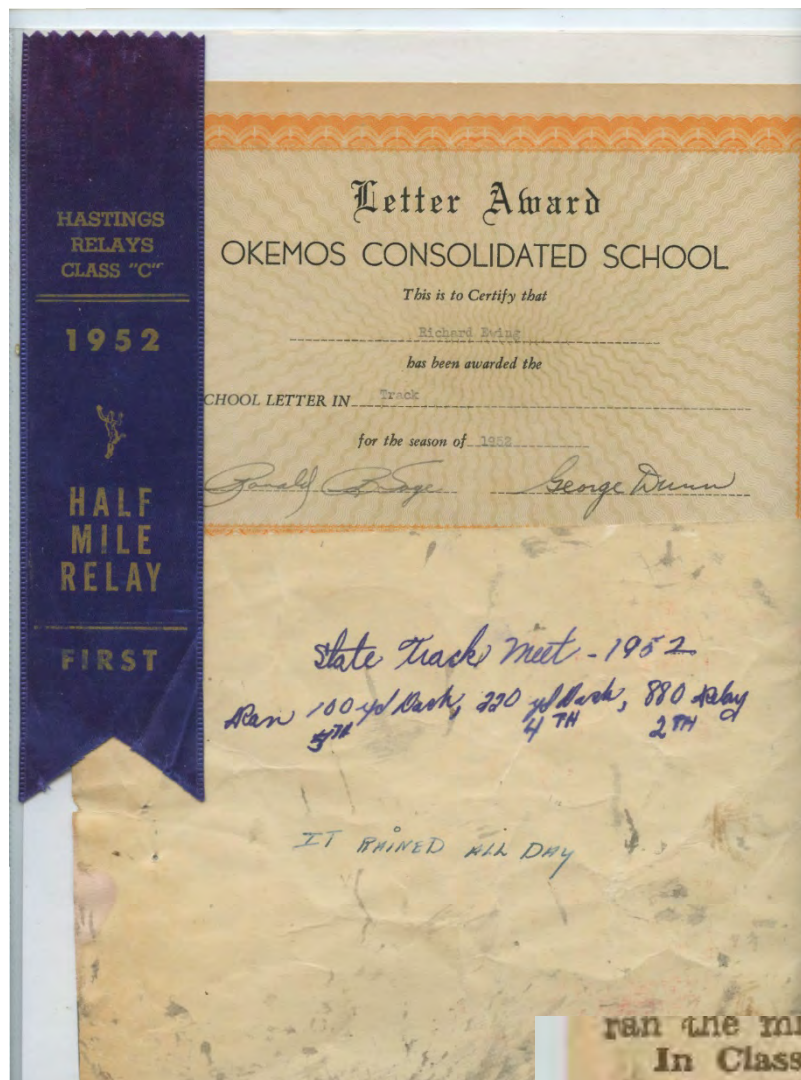 HASTINGS
RELAYS
CLASS "C"
1952
HALF
MILE
RELAY
FIRST
Letter Award
OKEMOS CONSOLIDATED SCHOOL
This is to Certify that
Richard Ewing
has been awarded the
CHOOL LETTER IN Track
for the season of 1952
Ronald George Dunn
State Track Meet - 1952
Ran 100 yd Dash, 220 yd Dash, 880 Relay
5TH 4TH 2TH
IT RAINED ALL DAY
ran the mi
In Class